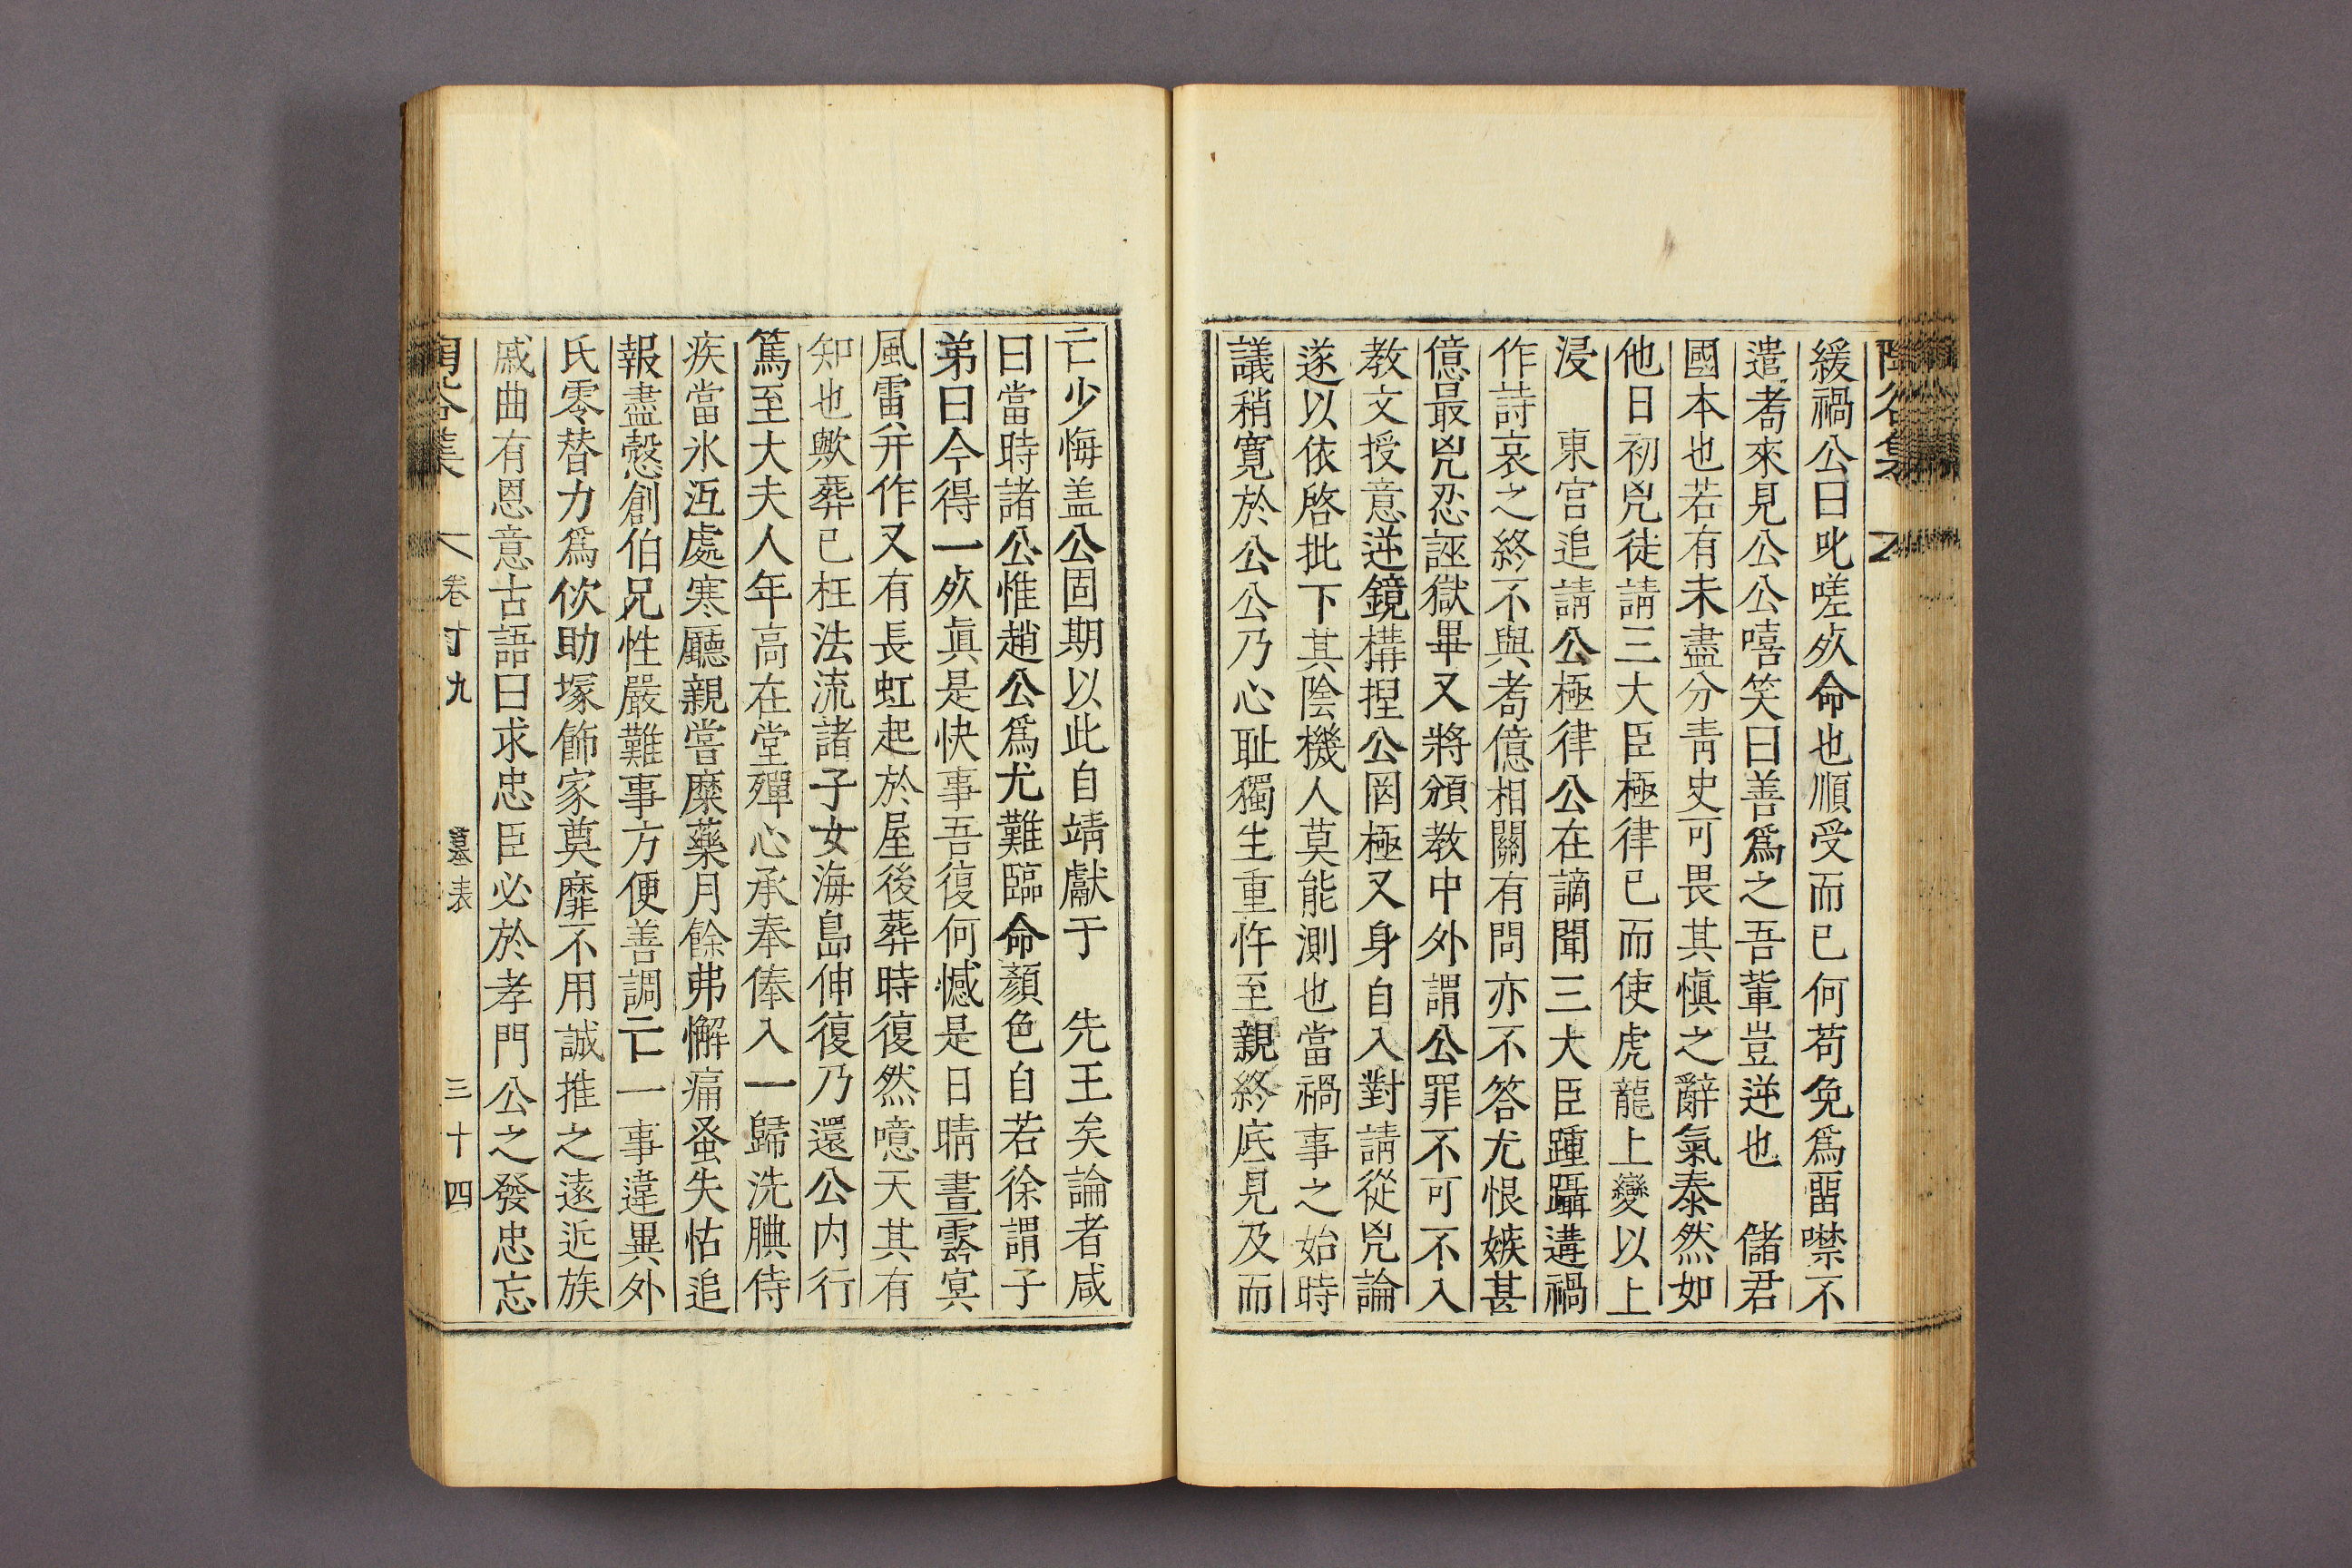 緩禍公曰叱嗟死命也順受而已何苟免爲留噤不
遣耇來見公公嘻笑曰善爲之吾軰豈逆也　儲君
國本也若有未盡分靑史可畏其愼之辭氣泰然如
他日初兇徒請三大臣極律已而使虎龍上變以上
浸　東宮追請公極律公在謫聞三大臣踵躡遘禍
作詩哀之終不與耇億相關有問亦不答尤恨嫉甚
億最兇忍誣獄畢又將頒教中外謂公罪不可不入
教文授意逆鏡構揑公罔極又身自入對請從兇論
遂以依啓批下其陰機人莫能測也當禍事之始時
議稍寬於公公乃心耻獨生重忤至親終底見及而
亡少悔盖公固期以此自靖獻于　先王矣論者咸
曰當時諸公惟趙公爲尤難臨命顏色自若徐謂子
弟曰今得一死眞是快事吾復何憾是日晴晝霧冥
風雷并作又有長虹起於屋後葬時復然噫天其有
知也歟葬已枉法流諸子女海島伸復乃還公内行
篤至大夫人年高在堂殫心承奉俸入一歸洗腆侍
疾當氷沍處寒廳親嘗糜藥月餘弗懈痛蚤失怙追
報盡慤創伯兄性嚴難事方便善調亡一事違異外
氏零替力爲佽助塚飾家奠靡不用誠推之遠近族
戚曲有恩意古語曰求忠臣必於孝門公之發忠忘
卷十九　墓表　三十四